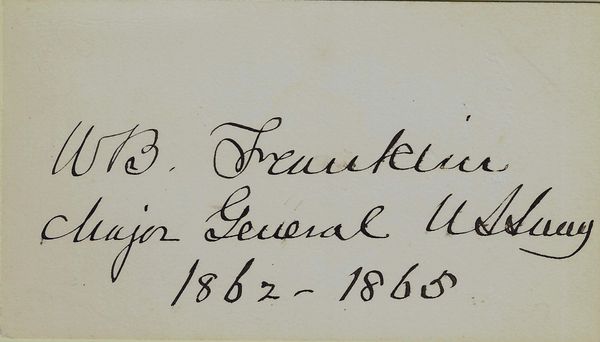 WB. Franklin
Major General U S Army
1862 - 1865